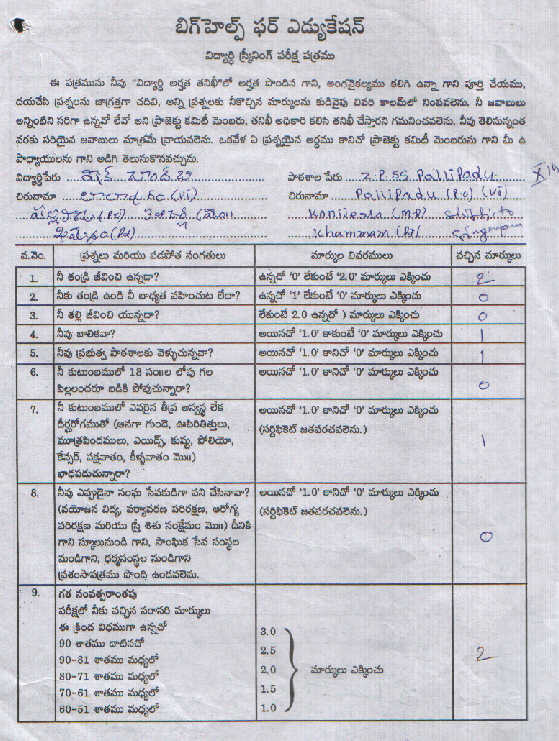 బిగ్‌హెల్ప్ ఫర్ ఎడ్యుకేషన్
విద్యార్థి స్క్రీనింగ్ పరీక్ష పత్రము
ఈ పత్రమును నీవు "విద్యార్థి అర్హత తనిఖీ"లో అర్హత పొందిన గాని, అంగవైకల్యము కలిగి ఉన్నా గాని పూర్తి చేయుము,
దయచేసి ప్రశ్నలను జాగ్రత్తగా చదివి, అన్ని ప్రశ్నలకు నీకొచ్చిన మార్కులను కుడివైపు చివరి కాలమ్‌లో నింపవలెను. నీ జవాబులు
అన్నింటిని సరిగా ఉన్నవో లేవో అని ప్రాజెక్టు కమిటీ మెంబరు, తనిఖీ అధికారి కలిసి తనిఖీ చేస్తారని గమనించవలెను. నీవు తెలిసినంత
వరకు సరియైన జవాబులు మాత్రమే వ్రాయవలెను. ఒకవేళ ఏ ప్రశ్నయైన అర్థము కానిచో ప్రాజెక్టు కమిటీ మెంబరును గాని మీ ఉ
పాధ్యాయులను గాని అడిగి తెలుసుకొనవచ్చును.
విద్యార్థిపేరు పాఠశాల పేరు Z.P.SS Pallipadu
చిరునామా చిరునామా Pallipadu (Po) (Vi)
Konijerla (MD)
Khammam (D)
వ.నెం. ప్రశ్నలు మరియు పరిశోధన సంగతులు మార్కుల వివరములు వచ్చిన మార్కులు
1. నీ తండ్రి జీవించి ఉన్నడా? ఉన్నచో '0' లేకుంటే '2.0' మార్కులు ఎక్కించు 2
2. నీకు తండ్రి ఉండి నీ బాధ్యత వహించుట లేదా? ఉన్నచో '1' లేకుంటే '0' మార్కులు ఎక్కించు 0
3. నీ తల్లి జీవించి యున్నదా? లేకుంటే 2.0 ఉన్నచో ) మార్కులు ఎక్కించు 0
4. నీవు బాలికవా? అయినచో '1.0' కాకుంటే '0' మార్కులు ఎక్కించు 1
5. నీవు ప్రభుత్వ పాఠశాలకు వెళ్ళుచున్నవా? అయినచో '1.0' కానిచో '0' మార్కులు ఎక్కించు 1
6. నీ కుటుంబములో 18 సం॥ల లోపు గల అయినచో '1.0' కానిచో '0' మార్కులు ఎక్కించు
పిల్లలందరూ బడికి పోవుచున్నారా? 0
7. నీ కుటుంబములో ఎవరైన తీవ్ర అస్వస్థ లేక అయినచో '1.0' కానిచో '0' మార్కులు ఎక్కించు
దీర్ఘరోగముతో (అనగా గుండె, ఊపిరితిత్తులు, (సర్టిఫికెట్ జతపరచవలెను.)
మూత్రపిండములు, ఎయిడ్స్, కుష్టు, పోలియో, 1
కేన్సర్, పక్షవాతం, కీళ్ళవాతం మొ॥)
బాధపడుచున్నారా?
8. నీవు ఎప్పుడైనా సంఘ సేవకుడిగా పని చేసినావా? అయినచో '1.0' కానిచో '0' మార్కులు ఎక్కించు
(వయోజన విద్య, పర్యావరణ పరిరక్షణ, ఆరోగ్య (సర్టిఫికెట్ జతపరచవలెను.)
పరిరక్షణ మరియు స్త్రీ శిశు సంక్షేమం మొ॥) దీనికి
గాని స్కూలునుండి గాని, సాంఘిక సేవ సంస్థల 0
నుండిగాని, ధర్మసంస్థల నుండిగాని
ప్రశంసాపత్రము పొంది ఉండవలెను.
9. గత సంవత్సరాంతపు
పరీక్షలో నీకు వచ్చిన సరాసరి మార్కులు
ఈ క్రింద విధముగా ఉన్నచో
90 శాతము దాటినచో 3.0
90-81 శాతము మధ్యలో 2.5
80-71 శాతము మధ్యలో 2.0 మార్కులు ఎక్కించు 2
70-61 శాతము మధ్యలో 1.5
60-51 శాతము మధ్యలో 1.0